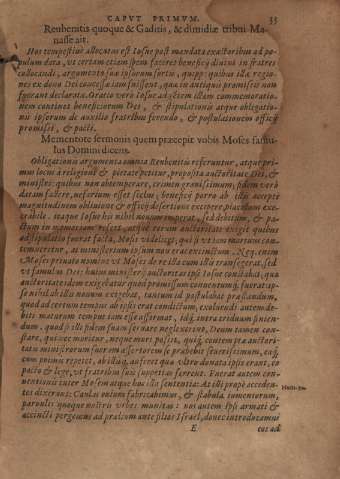 CAPVT PRIMVM. 33
Reubenitis quoque & Gaditis, & dimidiæ tribui Ma-
nasse ait.
Hos tempestiuè allocutus est Iosue post mandata exactoribus ad po-
pulum data, ut certam etiam spem faceret beneficij diuini in fratres
collocandi, argumento ipsorum sortis, quippe quibus illæ regio-
nes ex dono Dei concessæ iam fuissent, quæ in antiquis promissis non
fuerant declaratæ. Gratia verò Iosue ad gentem istam commemoratio-
nem continet beneficiorum Dei, & stipulationis atque obligatio-
nis ipsorum de auxilio fratribus ferendo, & postulationem officij
promissi, & pacti.
Mementote sermonis quem præcepit vobis Moses famu-
lus Domini dicens.
Obligationis argumenta omnia Reubenitis referuntur, atque pri-
mum loci à religione & pietate petitur, proposita auctoritate Dei, &
ministri: quibus non obtemperare, crimen grauissimum; fidem verò
datam fallere, nefarium esset scelus; beneficij porro ab illis accepti
magnitudinem obliuione & officij desertione excipere, placulum exe-
crabile. itaque Iosue his nihil noui imperat, sed debitum, & pa-
ctum in memoriam refert, atque rerum auctoritate exigit quibus
adstipulatio fuerat facta, Mosi videlicet, qui si vt iam mortuus com-
memoretur, at ministerium ipsum non erat extinctum. Neque enim
Moses priuato nomine vt Moses de re ista cum illis transegerat, sed
vt famulus Dei; huius ministerij auctoritas ipsi Iosue constabat, qua
auctoritate idem exigebatur quod promissum conuentumque fuerat: ip-
se nihil ab illis nouum exigebat, tantum id postulabat præstandum,
quod ad certum tempus ab ipsis erat condictum, exoluendi autem de-
bitis maturum tempus iam esse asserebat, idque intra triduum finien-
dum. quod si illi fidem suam seruare neglexerint, Deum tamen con-
stare, qui nec moritur, neque mori possit, quique eorum præ auctori-
tatem ministrorum suorum assertorem se præbebit seuerissimum, eaque
cum omnia repetet, ab illisque auferet quæ vltro donata ipsis erant, eo
pacto & lege, vt fratribus suis suppetias ferrent. Fuerat autem con-
uentionis inter Mosem atque hos illis sententia: At illi propè acceden-
tes dixerunt: Caulas ouium fabricabimus, & stabula iumentorum,
paruulis quoque nostris vrbes munitas: nos autem ipsi armati &
accincti pergemus ad prælium ante filios Israel, donec introducamus
E eos ad